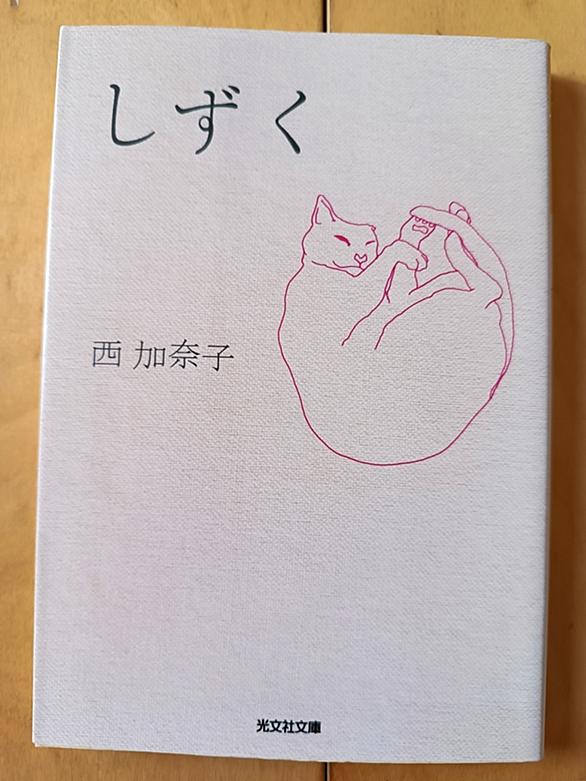 しずく
西 加奈子
光文社文庫